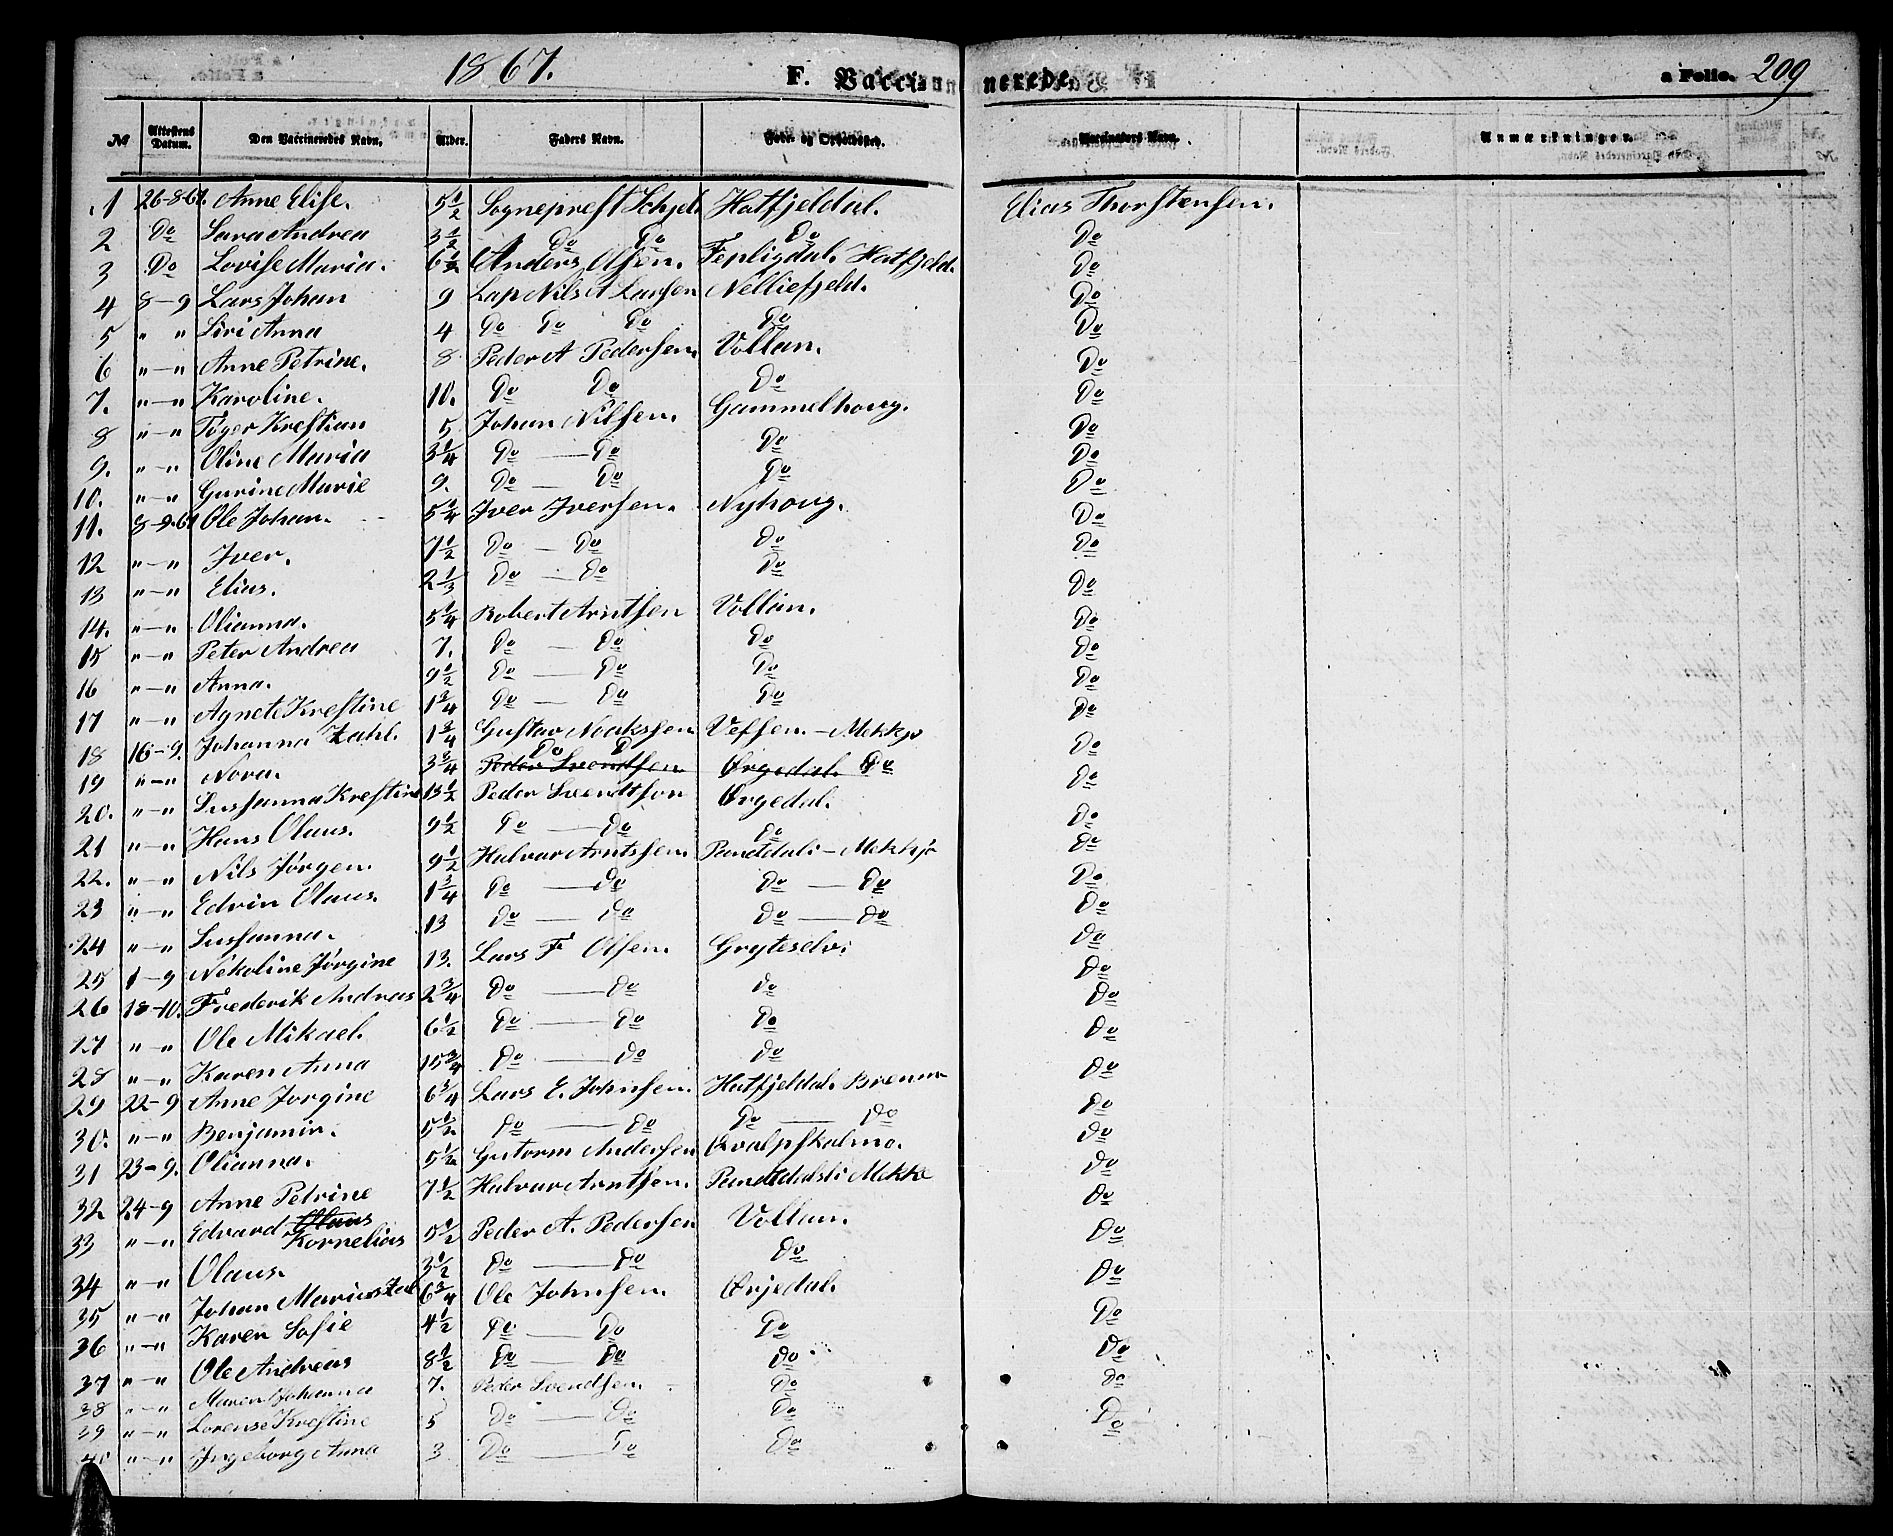 1867. F. Vaccinerede. a Folio. 209
№ Attestens Datum. Den Vaccineredes Navn. Alder. Faders Navn. Føde- og Opholdssted. Vaccinateurs Navn. Anmærkninger.
1 26-8-67. Anne Elise. 5 1/2 Sogneprest Schjel Hatfjeldal. Elias Thorstensen.
2 Do Sara Andrea 3 1/2 Do Do Do Do
3 Do Lovise Maria. 6 1/2 Anders Olsen. Fepligdal. Hatfjeld. Do
4 8-9 Lars Johan 9 Lap Nils A Larsen Nelliefjeld. Do
5 " " Siri Anna 4 Do Do Do Do Do
6 "-" Anne Petrine. 8 Peder A Pedersen. Vollan. Do
7. "-" Karoline. 10. Do Do Do Do
8 "-" Tøger Krestian 5 Johan Nilsen. Gammelhoug. Do
9. "-" Oline Maria 3 1/4 Do — Do Do Do
10. "-" Gurine Marie 9. Do — Do Do Do
11. 8-9-67 Ole Johan. 5 1/4 Iver Iversen. Nyhoug. Do
12 "-" Iver. 7 1/2 Do — Do Do Do
13 "-" Elias. 2 1/3 Do — Do Do Do
14. "-" Olianna. 5 1/4 Robert Arntsen Vollan. Do
15 "-" Peter Andrea 7. Do — Do Do Do
16 "-" Anna. 9 1/2 Do — Do Do Do
17 "-" Agnete Krestine 1 3/4 Do — Do Do Do
18 16-9. Johanna Zahl. 1 3/4 Gustav Noaksen Vefsen. - Mekkjo Do
19 "-" Nora. 3 3/4 Do D Peder Svendsen Ørgedal. Do Do
20. "-" Sussanna Krestine 13 1/2 Peder Svendtsen Ørgedal. Do
21 "-" Hans Olaus. 9 1/2 Do — Do Do Do
22. "-" Nils Jørgen. 9 1/2 Halvar Arntsen. Pantdali - Mekkjo Do
23 "-" Edvin Olaus. 1 3/4 Do — Do Do — Do Do
24 "-" Sussanna. 13 Do — Do Do — Do Do
25 1-9 Nekoline Jørgine 13. Lars F Olsen. Grytselv. Do
26 18-10. Frederik Andreas 2 3/4 Do — Do Do Do
27 "-" Ole Mikael. 6 1/2 Do — Do Do Do
28 "-" Karen Anna 10 3/4 Do — Do Do Do
29 22-9 Anne Jorgine 6 3/4 Lars E. Johnsen. Hatfjeldal. Brenmo Do
30. "-" Benjamin. 5 1/2 Do — Do Do — Do Do
31 23-9. Olianna. 5 1/2 Gutorm Andersen Qvalpskalmo. Do
32 24-9 Anne Petrine 7 1/2 Halvar Arntsen. Pantdalsli Mekk Do
33 "-" Edvard Olaus Kornelius 5 1/2 Peder A. Pedersen Vollan. Do
34 "-" Olaus. 3 1/2 Do — Do Do Do
35 "-" Johan Marius Zal 6 3/4 Ole Johnsen. Ørjedal. Do
36 "-" Karen Sofie 4 1/2 Do — Do Do Do
37 "-" Ole Andreas 8 1/2 Do — Do Do Do
38 "-" Maren Johanna 7. Peder Svendsen. Do Do
39 "-" Lorense Krestine 5 Do — Do Do Do
40 "-" Ingeborg Anna 3 Do — Do Do